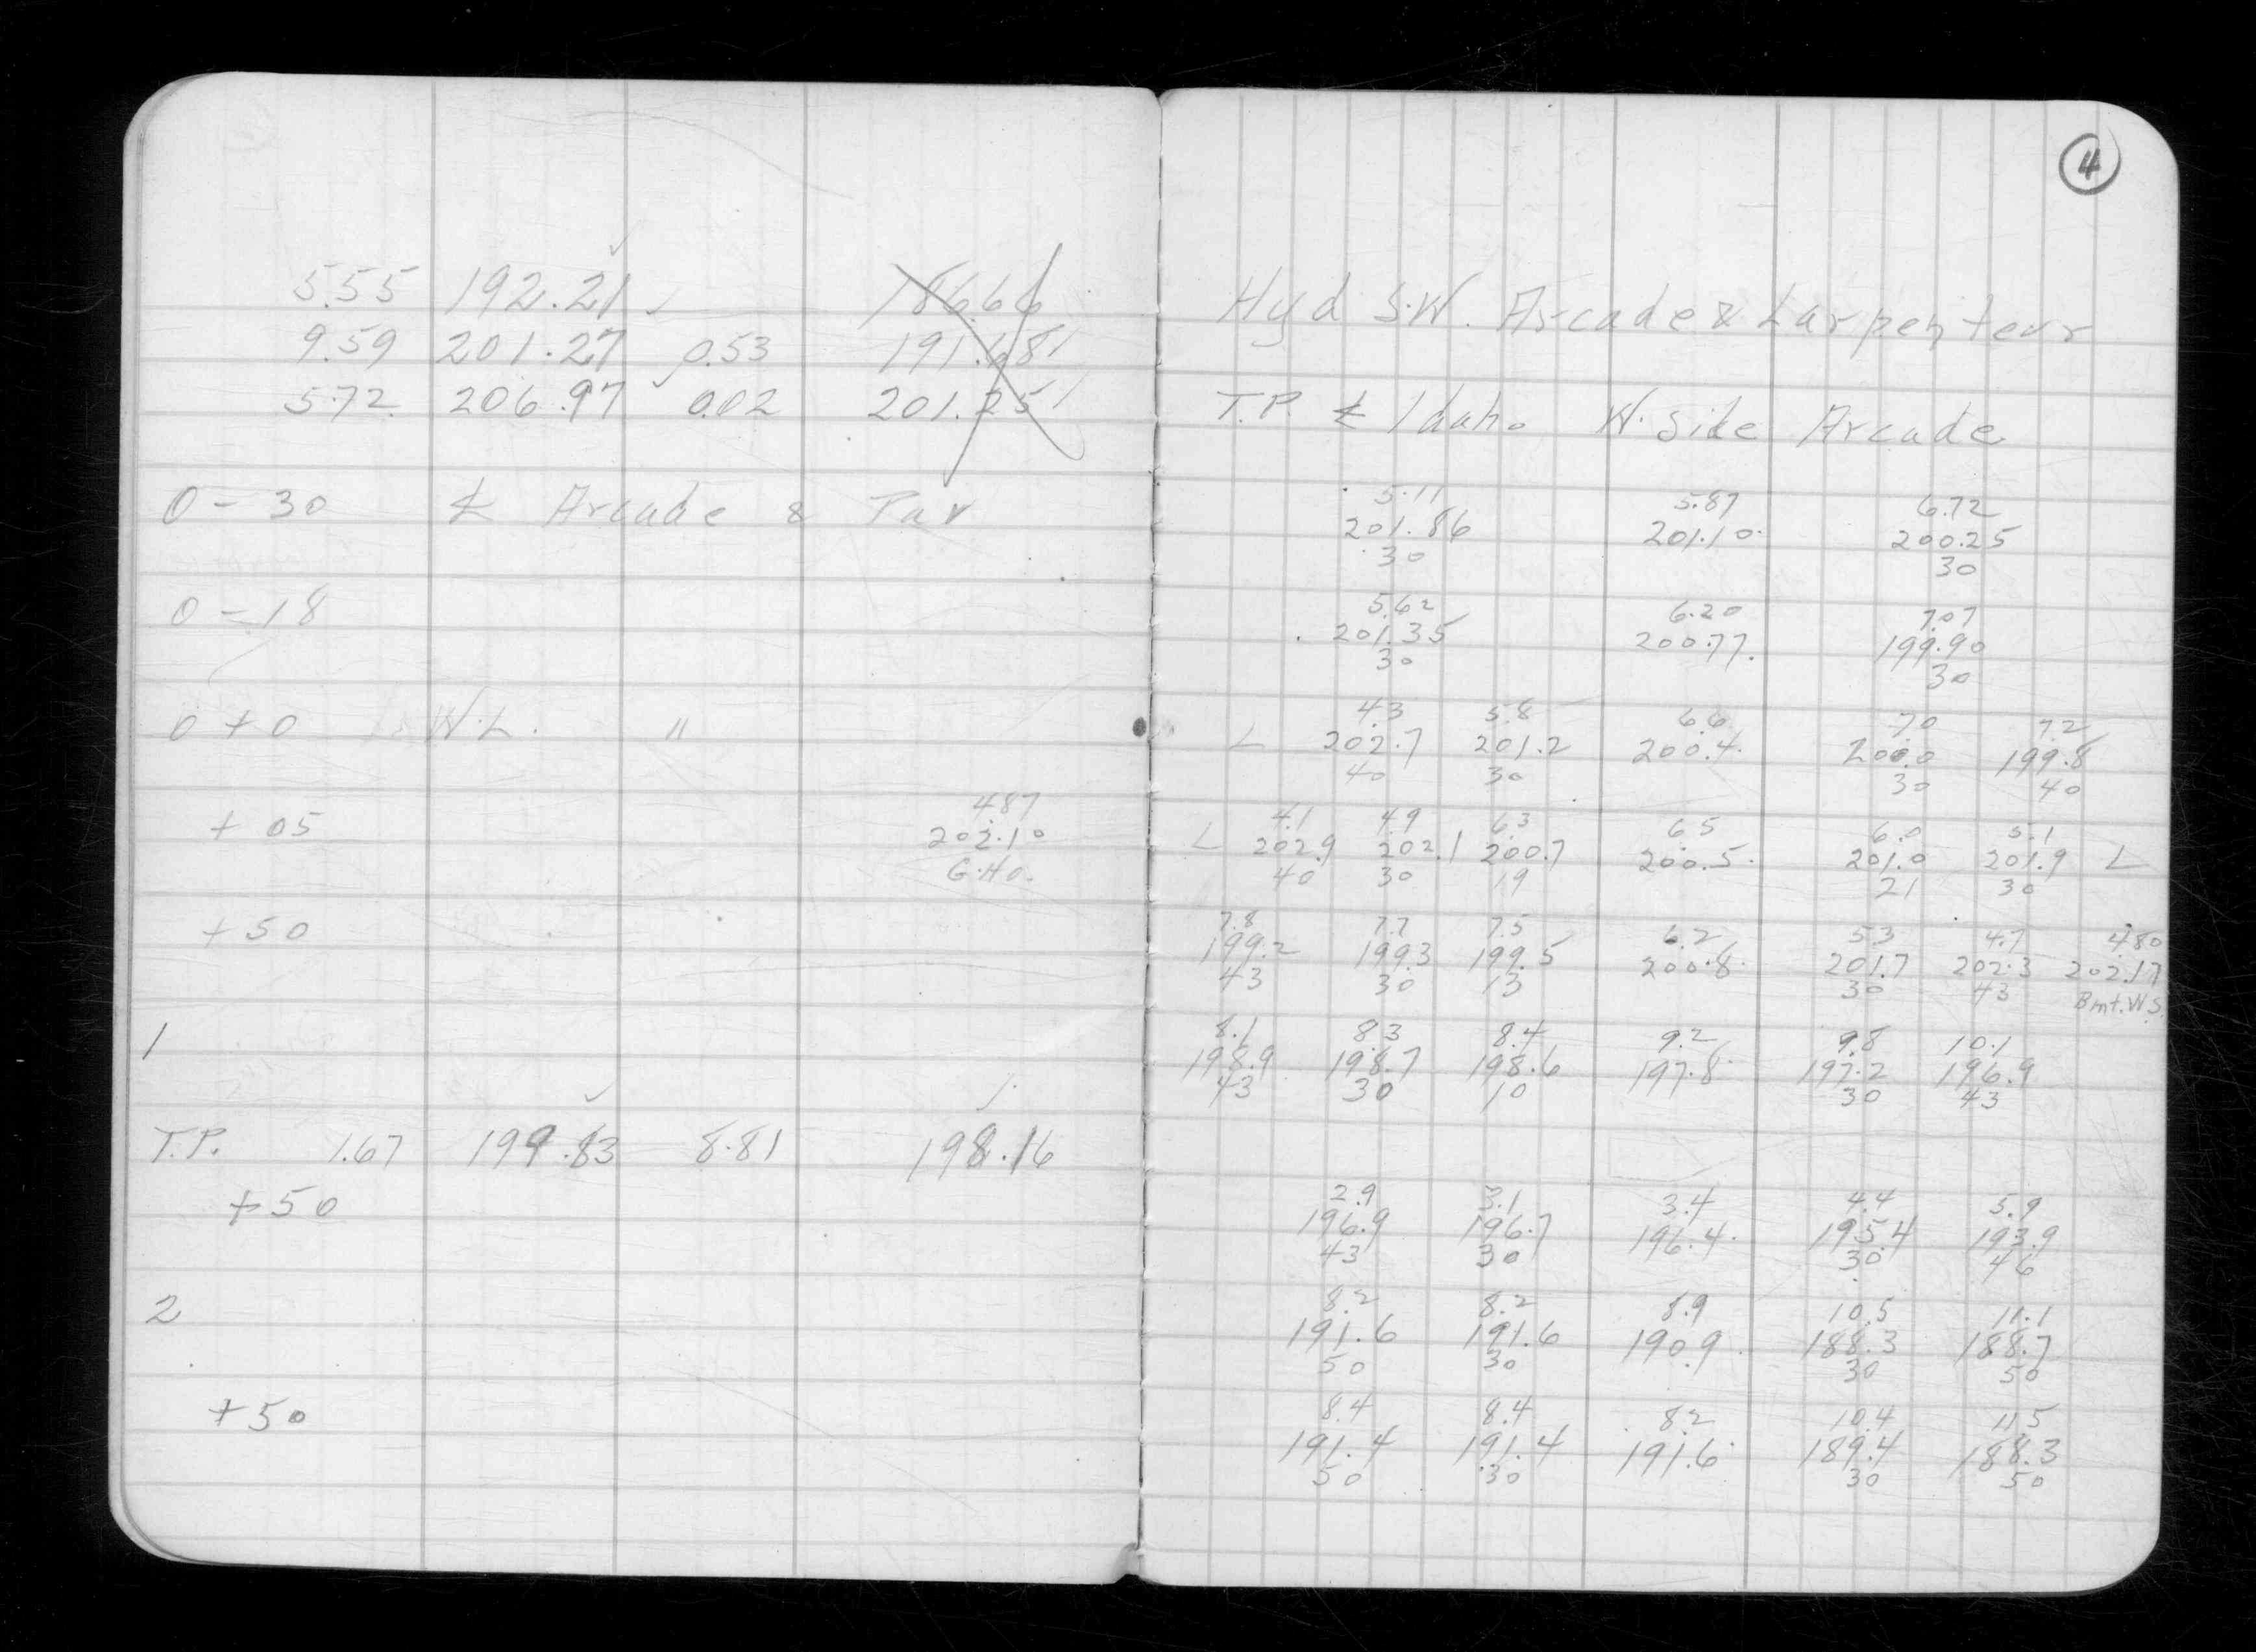 4
5.55 192.21 186.66
9.59 201.27 0.53 191.68
5.72 206.97 0.02 201.25
0-30 ℄ Arcade & Pav
0-18
0+0 W.L. "
4.87
+05 202.10
G.Ho.
+50
1
T.P. 1.67 199.83 8.81 198.16
+50
2
+50
Hyd S.W. Arcade & Larpenteur
T.P. ℄ Idaho W. Side Arcade
5.11 5.87 6.72
201.86 201.10 200.25
30 30
5.62 6.20 7.07
201.35 200.77 199.90
30 30
4.3 5.8 6.6 7.0 7.2
L 202.7 201.2 200.4 200.0 199.8
40 30 30 40
4.1 4.9 6.3 6.5 6.0 5.1
L 202.9 202.1 200.7 200.5 201.0 201.9 L
40 30 19 21 30
7.8 7.7 7.5 6.2 5.3 4.7 4.80
199.2 199.3 199.5 200.8 201.7 202.3 202.17
43 30 13 30 43 Bmt. W.S.
8.1 8.3 8.4 9.2 9.8 10.1
198.9 198.7 198.6 197.8 197.2 196.9
43 30 10 30 43
2.9 3.1 3.4 4.4 5.9
196.9 196.7 196.4 195.4 193.9
43 30 30 46
8.2 8.2 8.9 10.5 11.1
191.6 191.6 190.9 188.3 188.7
50 30 30 50
8.4 8.4 8.2 10.4 11.5
191.4 191.4 191.6 189.4 188.3
50 30 30 50